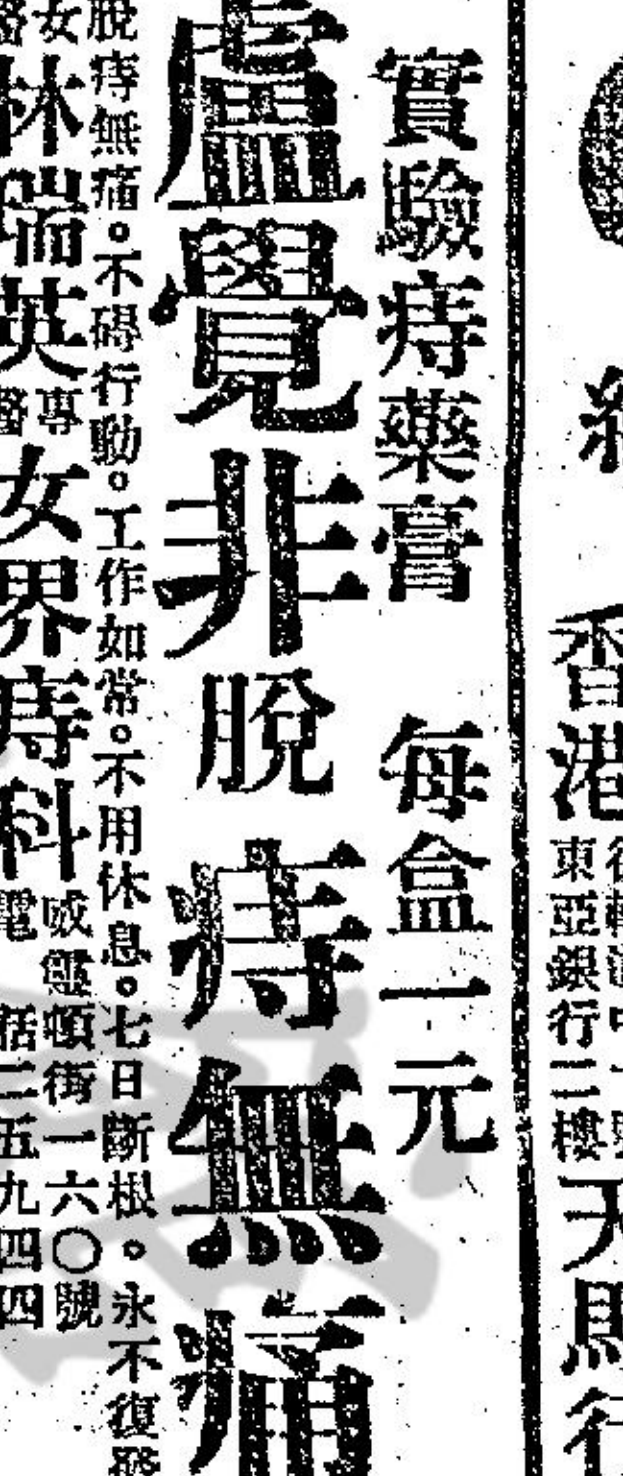 香港
東亞銀行二樓
天馬行
實驗痔藥膏 每盒一元
盧覺非脫痔無痛
脫痔無痛。不碍行動。工作如常。不用休息。七日斷根。永不復發
女醫林瑞英專醫女界痔科
威靈頓街一六〇號
電話二五九四四